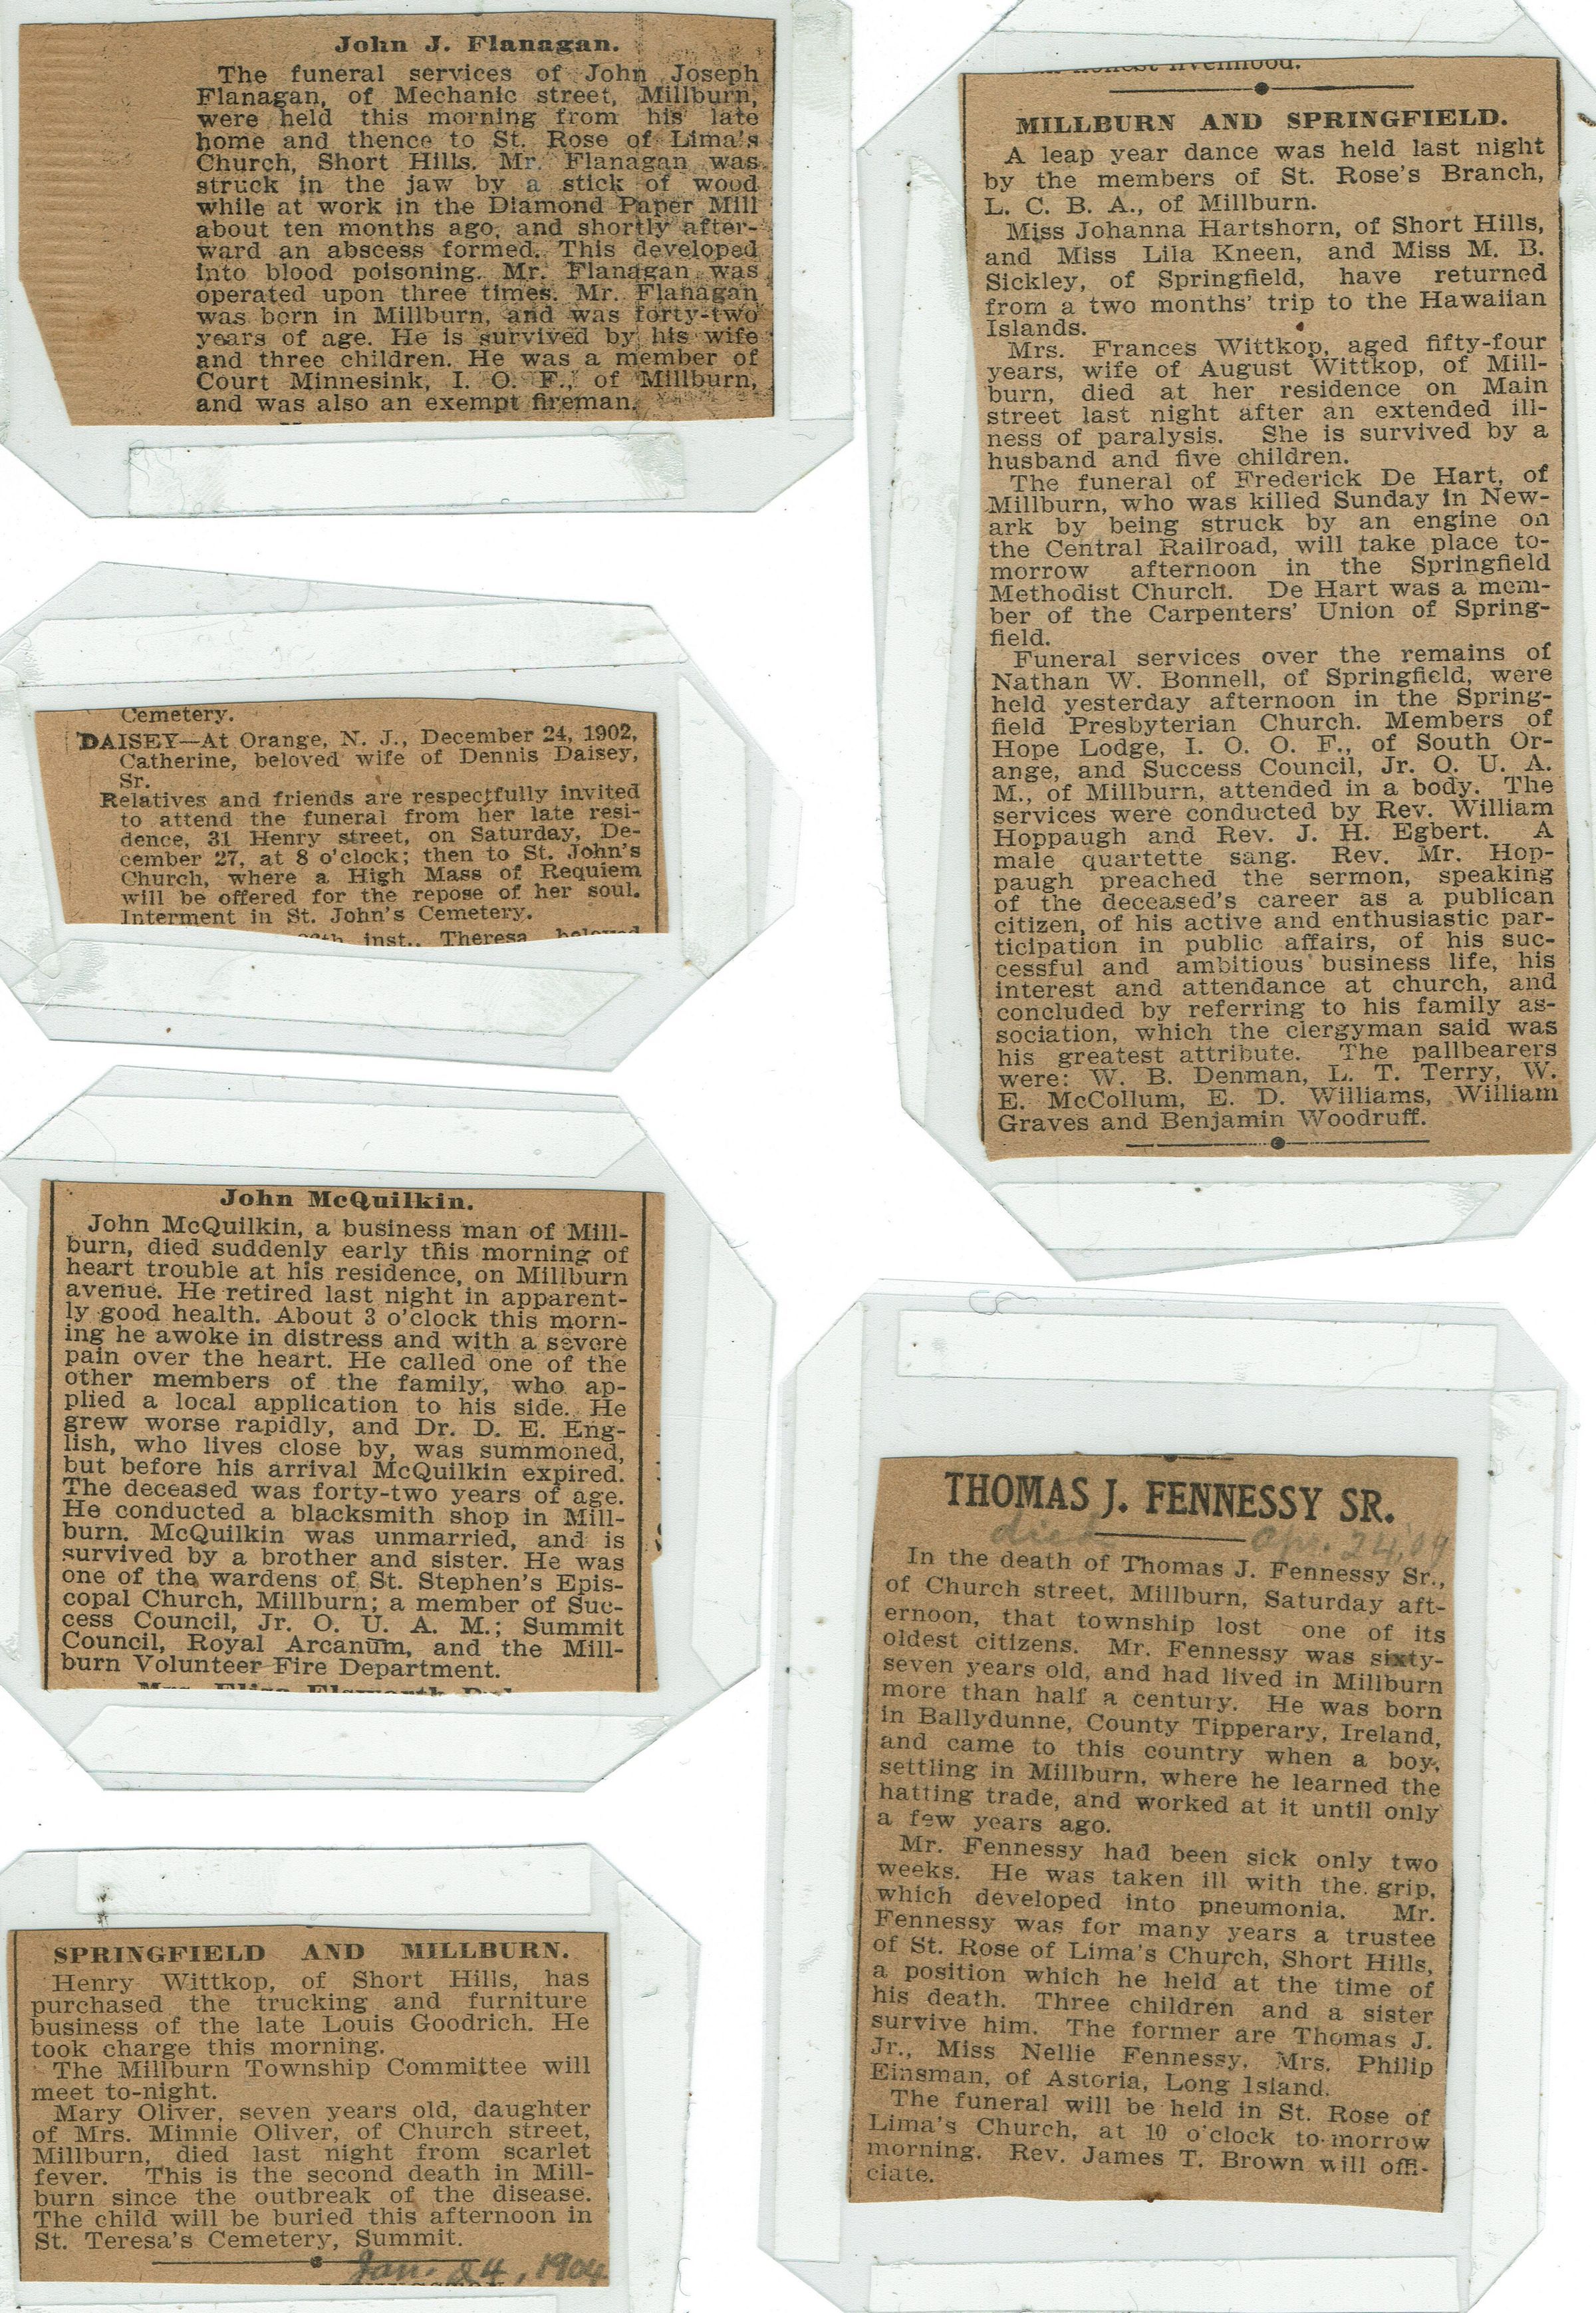 John J. Flanagan.
The funeral services of John Joseph
Flanagan, of Mechanic street, Millburn,
were held this morning from his late
home and thence to St. Rose of Lima's
Church, Short Hills. Mr. Flanagan was
struck in the jaw by a stick of wood
while at work in the Diamond Paper Mill
about ten months ago, and shortly after-
ward an abscess formed. This developed
into blood poisoning. Mr. Flanagan was
operated upon three times. Mr. Flanagan
was born in Millburn, and was forty-two
years of age. He is survived by his wife
and three children. He was a member of
Court Minnesink, I. O. F., of Millburn,
and was also an exempt fireman.
Cemetery.
DAISEY—At Orange, N. J., December 24, 1902,
Catherine, beloved wife of Dennis Daisey,
Sr.
Relatives and friends are respectfully invited
to attend the funeral from her late resi-
dence, 31 Henry street, on Saturday, De-
cember 27, at 8 o'clock; then to St. John's
Church, where a High Mass of Requiem
will be offered for the repose of her soul.
Interment in St. John's Cemetery.
inst., Theresa, beloved
John McQuilkin.
John McQuilkin, a business man of Mill-
burn, died suddenly early this morning of
heart trouble at his residence, on Millburn
avenue. He retired last night in apparent-
ly good health. About 3 o'clock this morn-
ing he awoke in distress and with a severe
pain over the heart. He called one of the
other members of the family, who ap-
plied a local application to his side. He
grew worse rapidly, and Dr. D. E. Eng-
lish, who lives close by, was summoned,
but before his arrival McQuilkin expired.
The deceased was forty-two years of age.
He conducted a blacksmith shop in Mill-
burn. McQuilkin was unmarried, and is
survived by a brother and sister. He was
one of the wardens of St. Stephen's Epis-
copal Church, Millburn; a member of Suc-
cess Council, Jr. O. U. A. M.; Summit
Council, Royal Arcanum, and the Mill-
burn Volunteer Fire Department.
Mrs. Eliza Elsworth
SPRINGFIELD AND MILLBURN.
Henry Wittkop, of Short Hills, has
purchased the trucking and furniture
business of the late Louis Goodrich. He
took charge this morning.
The Millburn Township Committee will
meet to-night.
Mary Oliver, seven years old, daughter
of Mrs. Minnie Oliver, of Church street,
Millburn, died last night from scarlet
fever. This is the second death in Mill-
burn since the outbreak of the disease.
The child will be buried this afternoon in
St. Teresa's Cemetery, Summit.
Jan. 24, 1904
honest livelihood.
MILLBURN AND SPRINGFIELD.
A leap year dance was held last night
by the members of St. Rose's Branch,
L. C. B. A., of Millburn.
Miss Johanna Hartshorn, of Short Hills,
and Miss Lila Kneen, and Miss M. B.
Sickley, of Springfield, have returned
from a two months' trip to the Hawaiian
Islands.
Mrs. Frances Wittkop, aged fifty-four
years, wife of August Wittkop, of Mill-
burn, died at her residence on Main
street last night after an extended ill-
ness of paralysis. She is survived by a
husband and five children.
The funeral of Frederick De Hart, of
Millburn, who was killed Sunday in New-
ark by being struck by an engine on
the Central Railroad, will take place to-
morrow afternoon in the Springfield
Methodist Church. De Hart was a mem-
ber of the Carpenters' Union of Spring-
field.
Funeral services over the remains of
Nathan W. Bonnell, of Springfield, were
held yesterday afternoon in the Spring-
field Presbyterian Church. Members of
Hope Lodge, I. O. O. F., of South Or-
ange, and Success Council, Jr. O. U. A.
M., of Millburn, attended in a body. The
services were conducted by Rev. William
Hoppaugh and Rev. J. H. Egbert. A
male quartette sang. Rev. Mr. Hop-
paugh preached the sermon, speaking
of the deceased's career as a publican
citizen, of his active and enthusiastic par-
ticipation in public affairs, of his suc-
cessful and ambitious business life, his
interest and attendance at church, and
concluded by referring to his family as-
sociation, which the clergyman said was
his greatest attribute. The pallbearers
were: W. B. Denman, L. T. Terry, W.
E. McCollum, E. D. Williams, William
Graves and Benjamin Woodruff.
THOMAS J. FENNESSY SR.
died Apr. 24, '09
In the death of Thomas J. Fennessy Sr.,
of Church street, Millburn, Saturday aft-
ernoon, that township lost one of its
oldest citizens. Mr. Fennessy was sixty-
seven years old, and had lived in Millburn
more than half a century. He was born
in Ballydunne, County Tipperary, Ireland,
and came to this country when a boy,
settling in Millburn, where he learned the
hatting trade, and worked at it until only
a few years ago.
Mr. Fennessy had been sick only two
weeks. He was taken ill with the grip,
which developed into pneumonia. Mr.
Fennessy was for many years a trustee
of St. Rose of Lima's Church, Short Hills,
a position which he held at the time of
his death. Three children and a sister
survive him. The former are Thomas J.
Jr., Miss Nellie Fennessy, Mrs. Philip
Einsman, of Astoria, Long Island.
The funeral will be held in St. Rose of
Lima's Church, at 10 o'clock to-morrow
morning. Rev. James T. Brown will offi-
ciate.